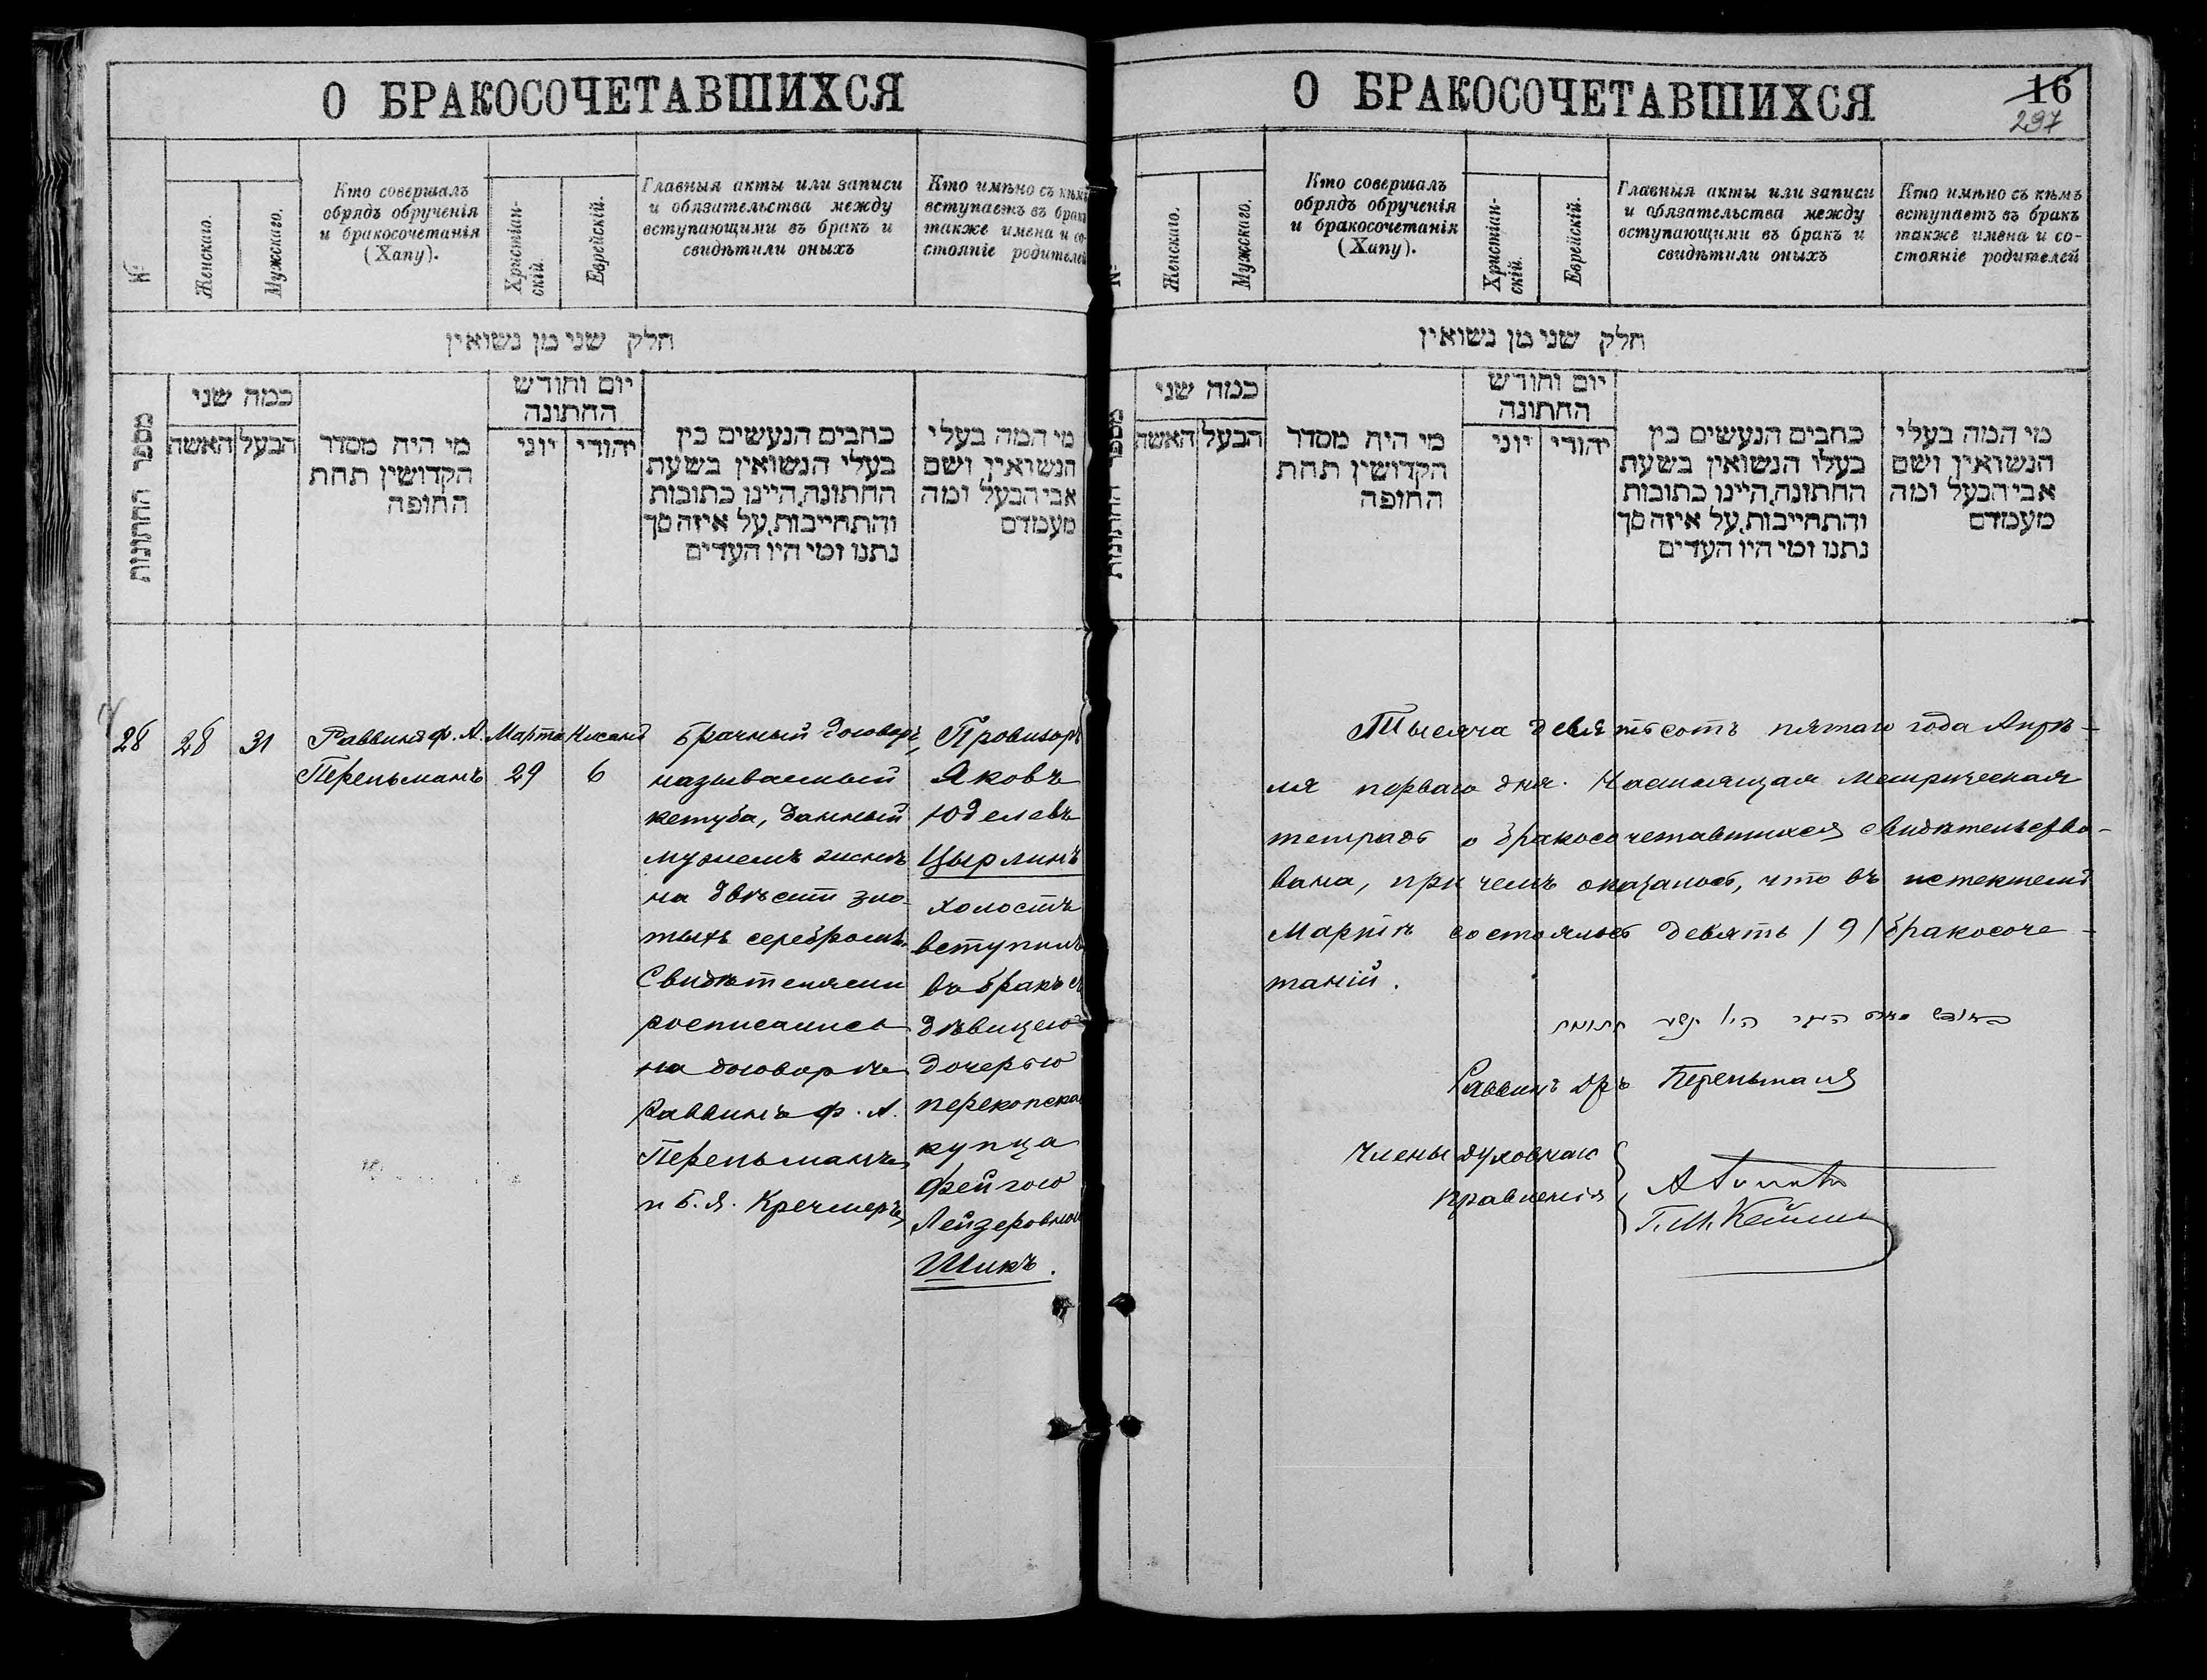 О БРАКОСОЧЕТАВШИХСЯ
№
Женскаго.
Мужскаго.
Кто совершалъ
обрядъ обрученія
и бракосочетанія
(Хапу).
Христіан-
скій.
Еврейскій.
Главныя акты или записи
и обязательства между
вступающими въ бракъ и
свидѣтили оныхъ
Кто имѣно съ кѣмъ
вступаетъ въ бракъ
также имена и со-
стояніе родителей
חלק שני מן נשואין
מספר החתונות
כמה שני
האשה
הבעל
מי היה מסדר
הקדושין תחת
החופה
יום וחודש
החתונה
יוני
יהודי
כתבים הנעשים בין
בעלי הנשואין בשעת
החתונה, היינו כתובות
והתחייבות, על איזה סך
נתנו ומי היו העדים
מי המה בעלי
הנשואין ושם
אבי הבעל ומה
מעמדם
28
28
31
Раввинъ Ф. А.
Перельманъ
Марта
29
Нисана
6
Брачный договоръ,
называемый
кетуба, данный
мужемъ женѣ
на двѣсти зло-
тыхъ серебромъ.
Свидѣтелями
росписались
на договорѣ
Раввинъ Ф. А.
Перельманъ
и Б. Я. Кречмеръ
Провизоръ
Яковъ
Юделевъ
Цырлинъ
холостъ
вступилъ
въ бракъ съ
дѣвицею
дочерью
перекопска
купца
Фейгою
Лейзеровною
Шикъ.
О БРАКОСОЧЕТАВШИХСЯ
16
297
№
Женскаго.
Мужскаго.
Кто совершалъ
обрядъ обрученія
и бракосочетанія
(Хапу).
Христіан-
скій.
Еврейскій.
Главныя акты или записи
и обязательства между
вступающими въ бракъ и
свидѣтили оныхъ
Кто имѣно съ кѣмъ
вступаетъ въ бракъ
также имена и со-
стояніе родителей
חלק שני מן נשואין
מספר החתונות
כמה שני
האשה
הבעל
מי היה מסדר
הקדושין תחת
החופה
יום וחודש
החתונה
יוני
יהודי
כתבים הנעשים בין
בעלו הנשואין בשעת
החתונה, היינו כתובות
והתחייבות, על איזה סך
נתנו ומי היו העדים
מי המה בעלי
הנשואין ושם
אבי הבעל ומה
מעמדם
Тысяча девятьсотъ пятаго года Апрѣ-
ля перваго дня. Настоящая метрическая
тетрадь о бракосочетавшихся свидѣтельство-
вана, при чемъ оказалось, что въ истекшемъ
Мартѣ состоялось девять /9/ бракосоче-
таній.
היו תשע חתונות
Раввинъ Дръ Перельманъ
Члены духовнаго
правленія
Г. М.